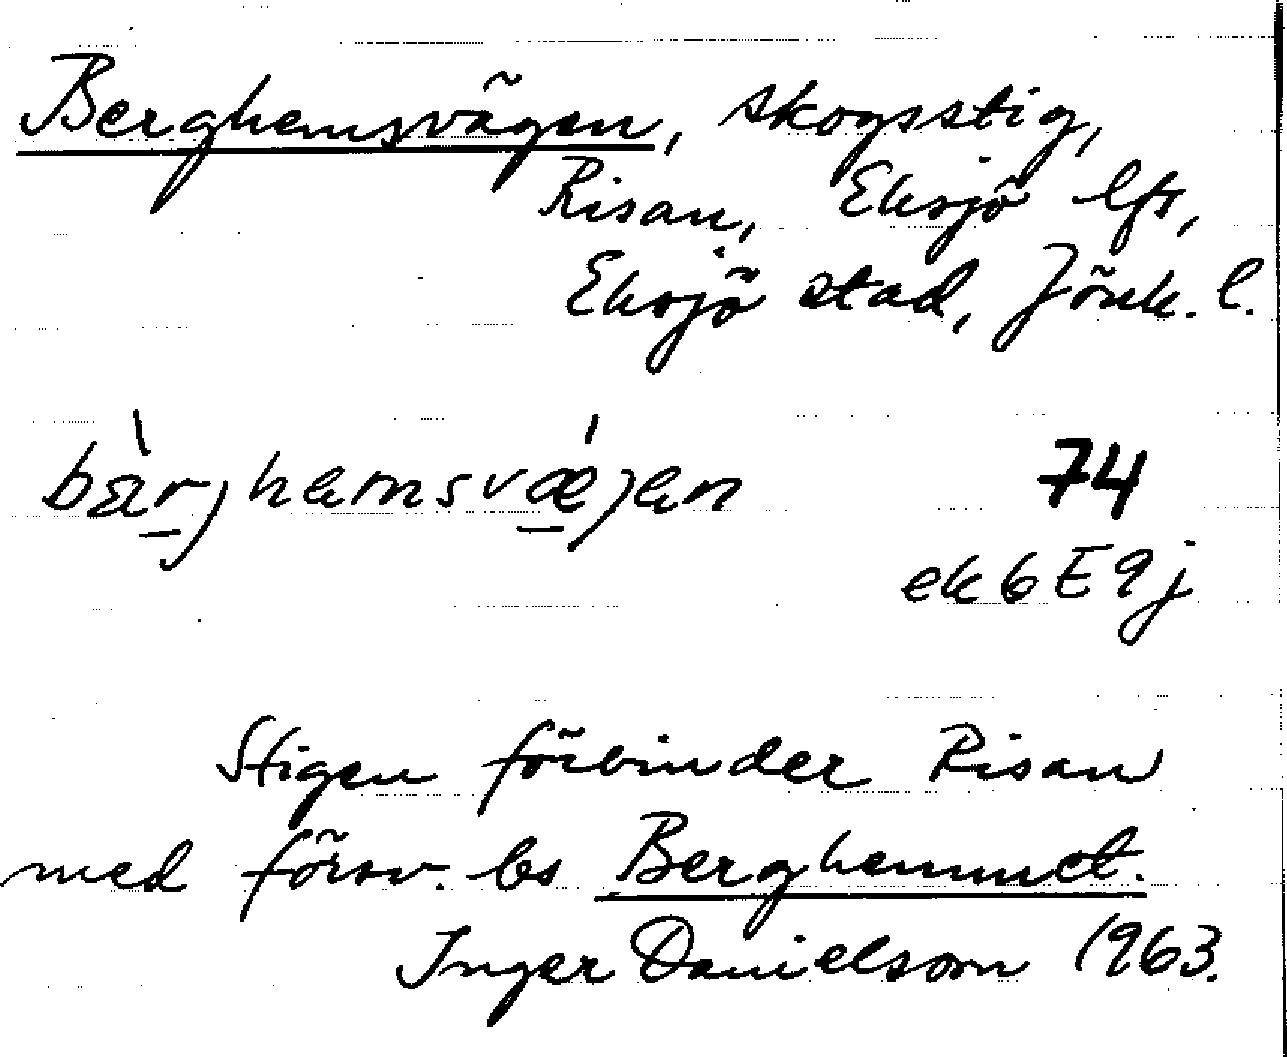 Berghemsvägen, skogsstig,
Risan, Eksjö lfs,
Eksjö stad, Jönk. l.
bæ̀rjhemsvǽjen 74
ek 6 E 9 j
Stigen förbinder Risan
med försv. bs Berghemmet.
Inger Danielson 1963.